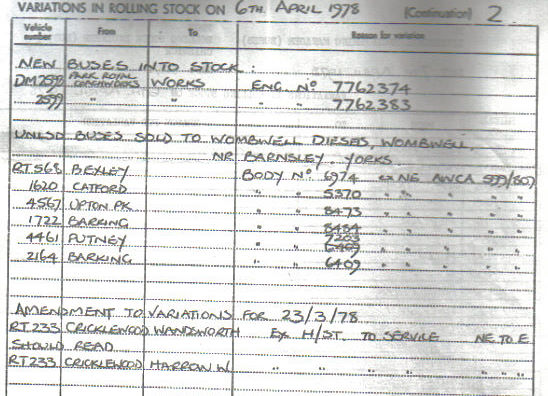 VARIATIONS IN ROLLING STOCK ON 6TH APRIL 1978 (Continuation) 2
Vehicle number From To Reason for variation
NEW BUSES INTO STOCK:
DM2598 PARK ROYAL COACHWORKS WORKS ENG. Nº 7762374
2599 " " " " 7762383
UNLSD BUSES SOLD TO WOMBWELL DIESELS, WOMBWELL,
NR BARNSLEY. YORKS.
RT568 BEXLEY BODY Nº 6974 ex NE AWCA
1620 CATFORD " " 5370 " " " " "
4567 UPTON PK " " 8473 " " " " "
1722 BARKING " " 8484 " " " " "
4461 PUTNEY " " 7203 " " " " "
2164 BARKING " " 6409 " " " " "
AMENDMENT TO VARIATIONS FOR 23/3/78
RT233 CRICKLEWOOD WANDSWORTH Ex H/ST. TO SERVICE NE TO E
SHOULD READ
RT233 CRICKLEWOOD HARROW W. " " " " " " "